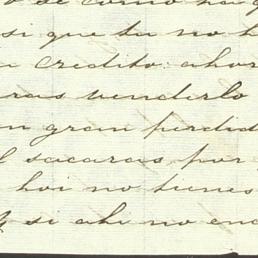 se como ha
si que tu no h
credito: ahor
ras venderlo
gran perdid
sacaras por
hoi no tienes
y si ahi no enc